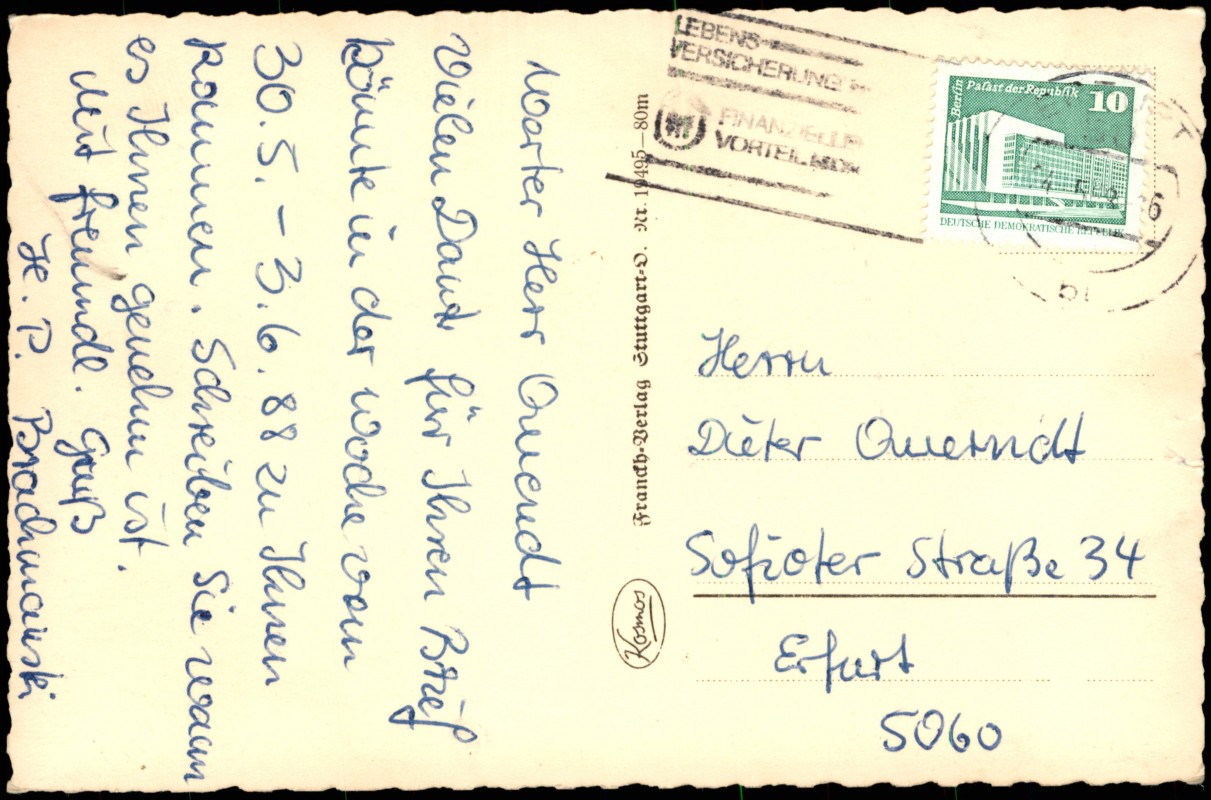 Werter Herr Querndt
Vielen Dank für Ihren Brief
könnte in der Woche vom
30.5. - 3.6.88 zu Ihnen
kommen. Schreiben Sie wann
es Ihnen genehm ist.
Mit freundl. Gruß
H. P.
Franckh-Verlag Stuttgart-O. Nr. 19495–80m
Kosmos
LEBENS-
VERSICHERUNG
FINANZIELLE
VORTEIL
Berlin Palast der Republik
10
DEUTSCHE DEMOKRATISCHE REPUBLIK
Herrn
Dieter Querndt
Sofioter Straße 34
Erfurt
5060